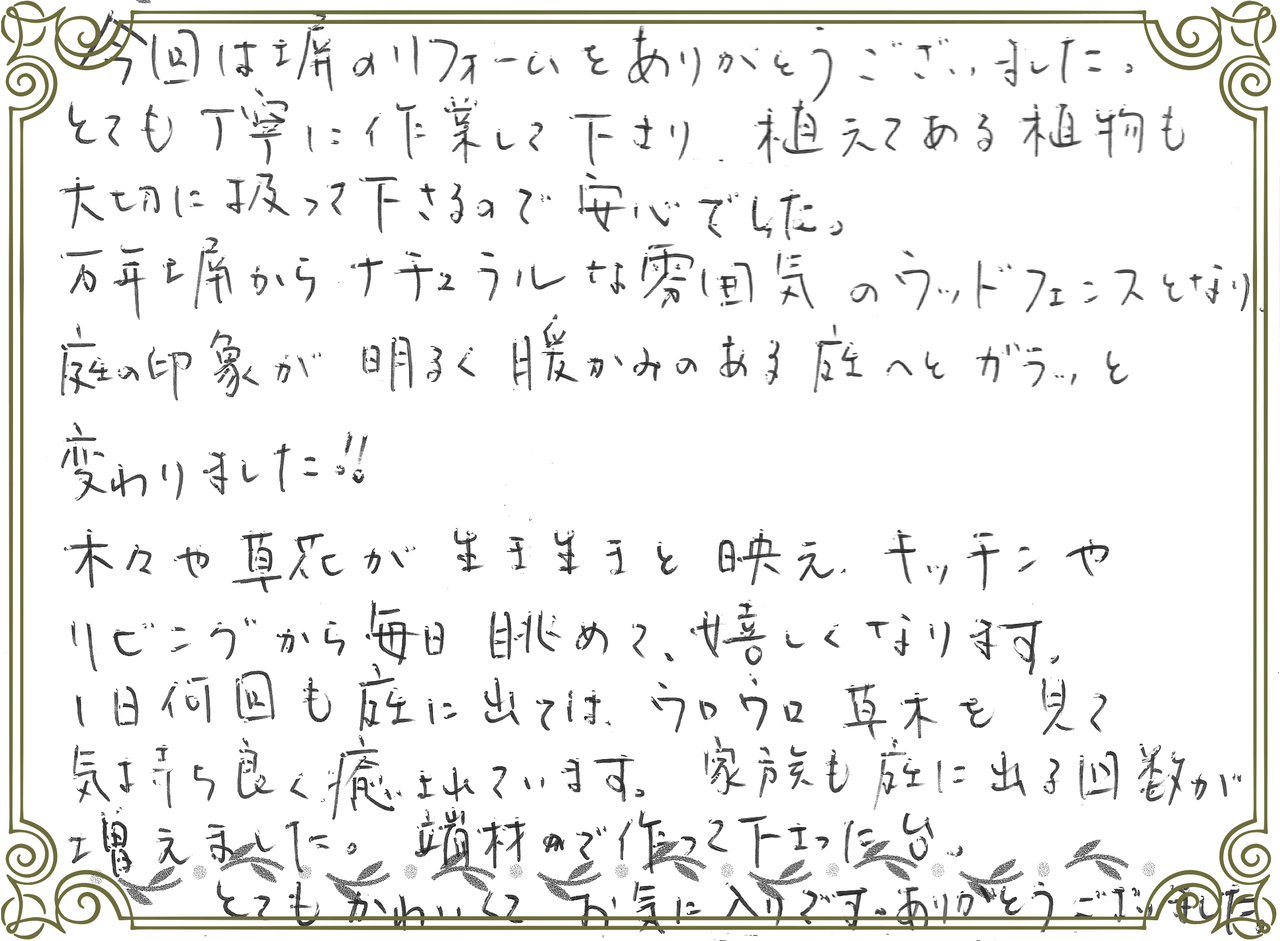 今回は塀のリフォームをありがとうございました。
とても丁寧に作業して下さり、植えてある植物も
大切に扱って下さるので安心でした。
万年塀からナチュラルな雰囲気のウッドフェンスとなり、
庭の印象が明るく暖かみのある庭へとガラッと
変わりました!!
木々や草花が生き生きと映え、キッチンや
リビングから毎日眺めて、嬉しくなります。
1日何回も庭に出ては、ウロウロ草木を見て
気持ち良く癒されています。家族も庭に出る回数が
増えました。端材で作って下さった台。
とてもかわいくて お気に入りです。ありがとうございました。